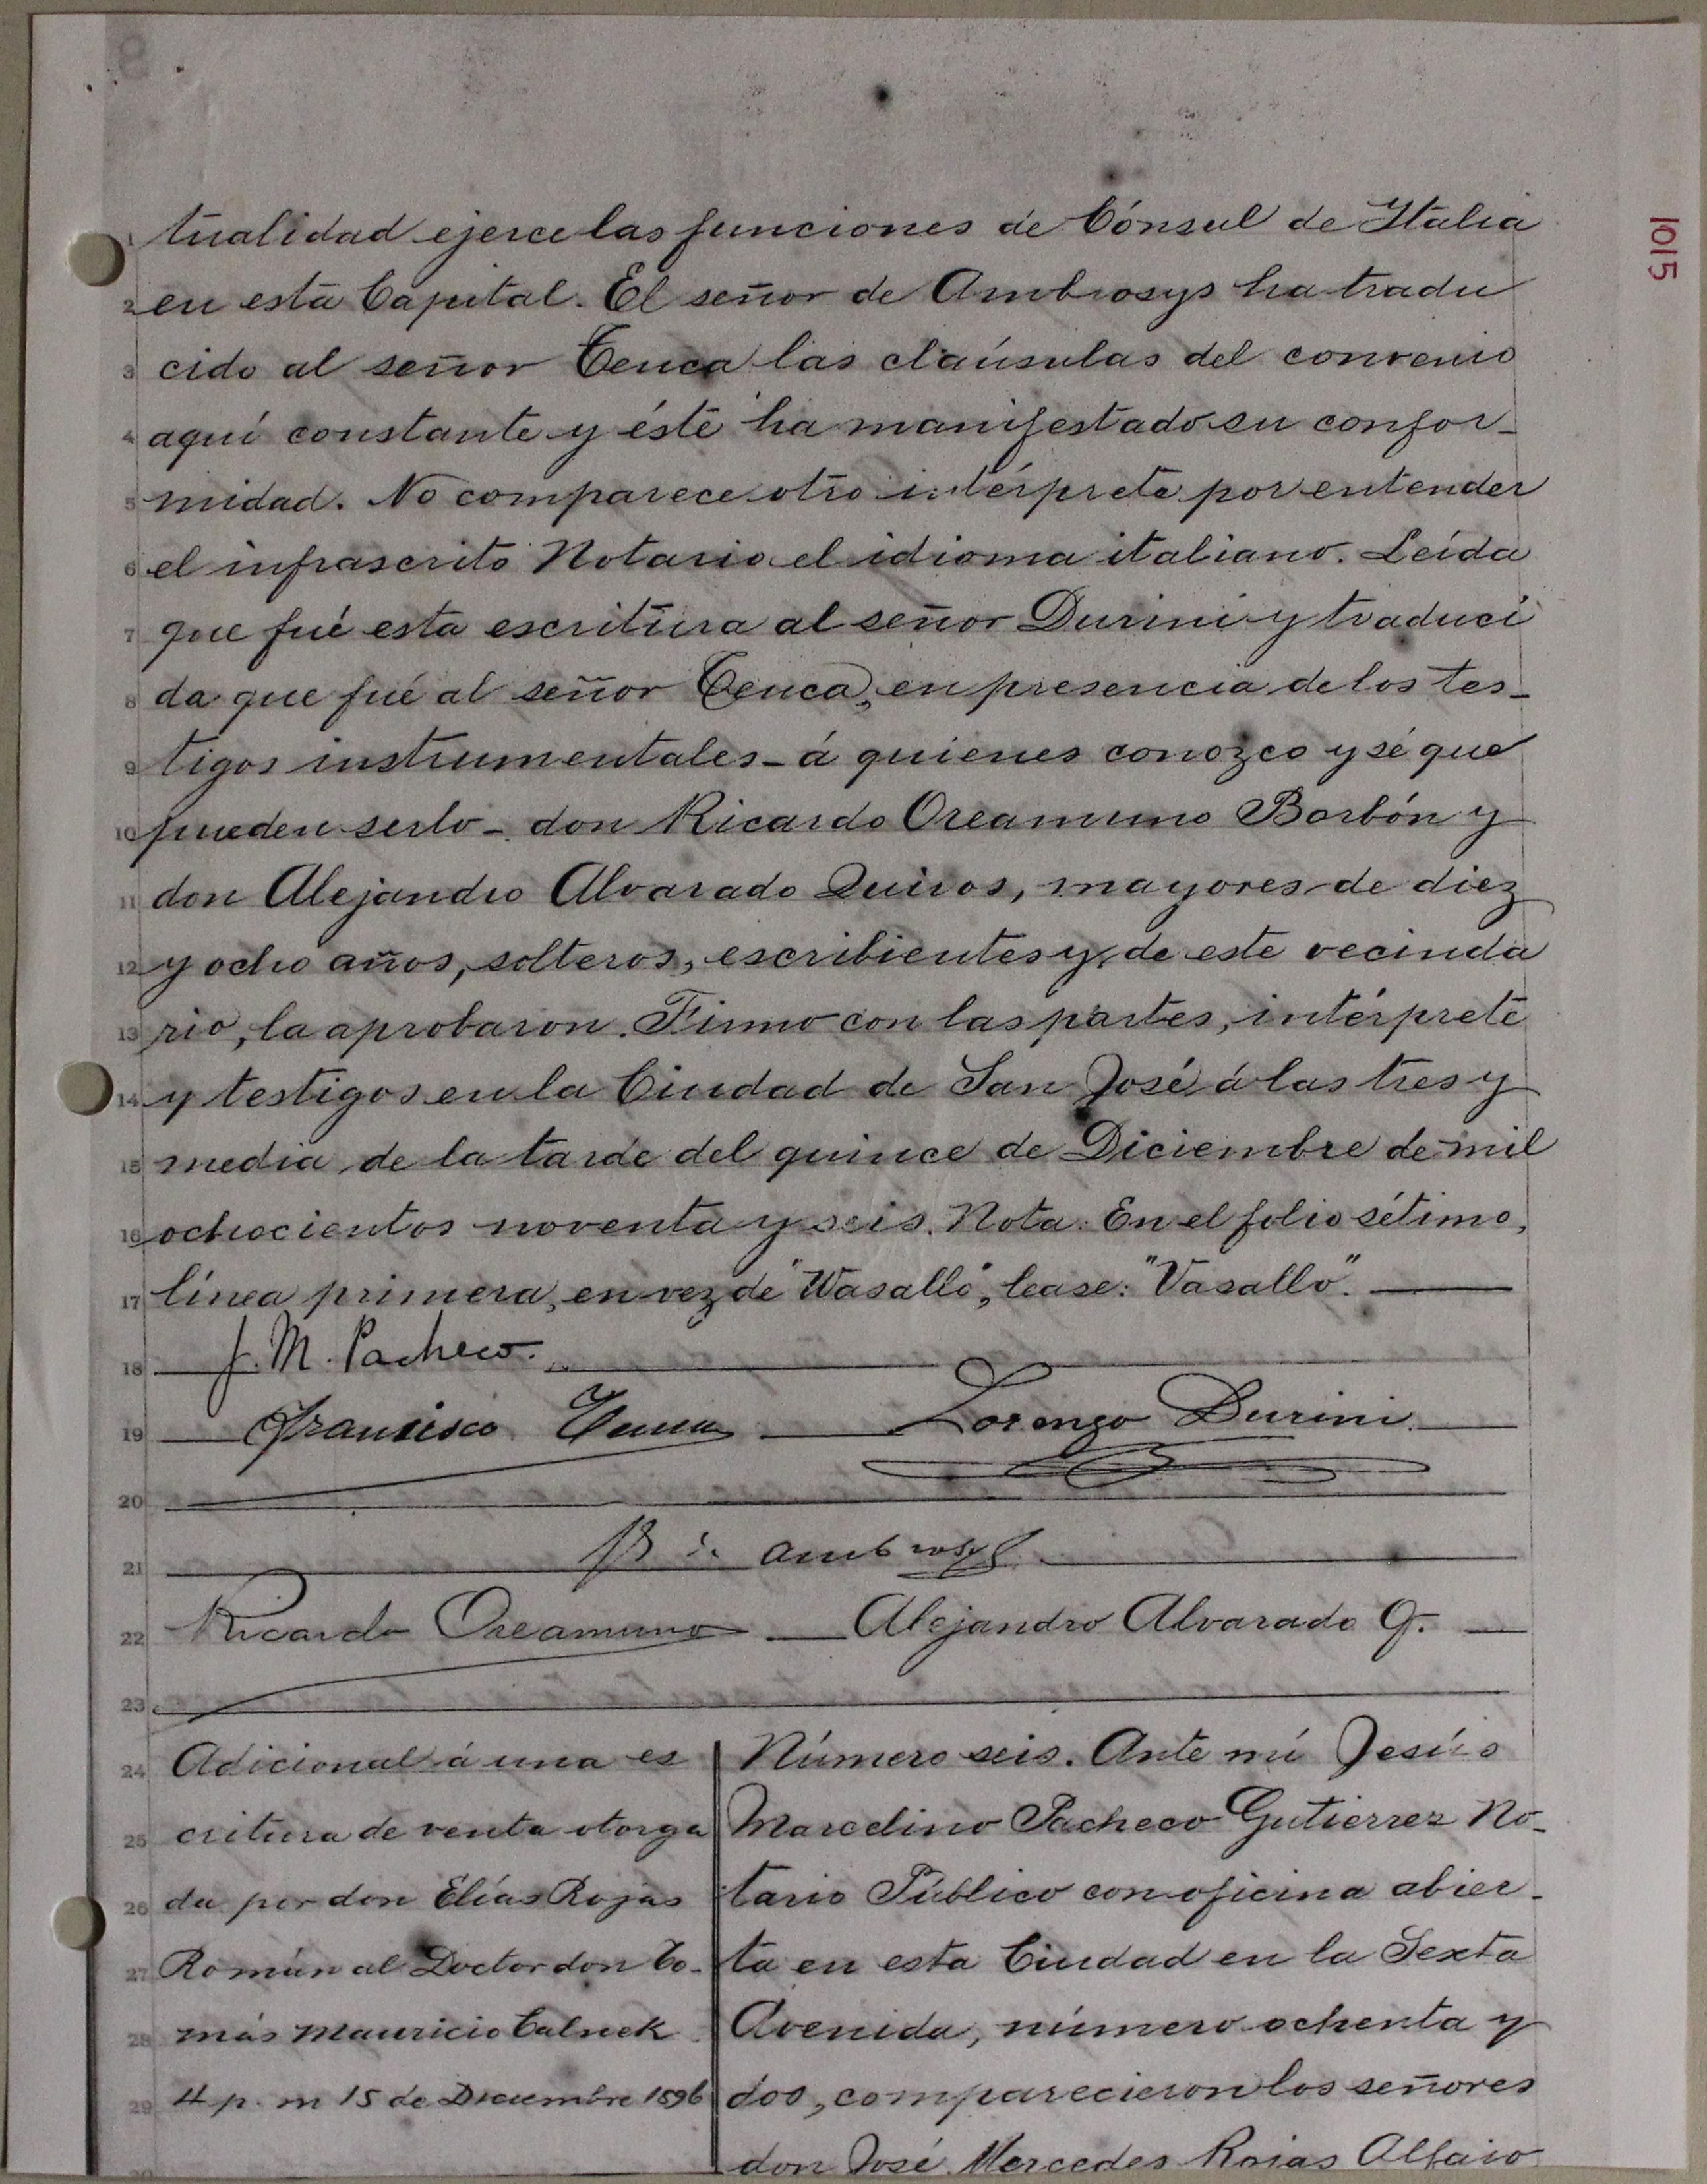 1015
1 tualidad ejerce las funciones de Cónsul de Italia
2 en esta Capital. El señor de Ambrosys ha tradu
3 cido al señor Tenca las claúsulas del convenio
4 aquí constante y éste ha manifestado su confor-
5 midad. No comparece otro intérprete por entender
6 el infrascrito Notario el idioma italiano. Leída
7 que fué esta escritura al señor Durini y traduci
8 da que fué al señor Tenca, en presencia de los tes-
9 tigos instrumentales - á quienes conozco y sé que
10 pueden serlo - don Ricardo Oreamuno Borbón y
11 don Alejandro Alvarado Quiros, mayores de diez
12 y ocho años, solteros, escribientes y de este vecinda
13 rio, la aprobaron. Firmo con las partes, intérprete
14 y testigos en la Ciudad de San José á las tres y
15 media de la tarde del quince de Diciembre de mil
16 ochocientos noventa y seis. Nota. En el folio sétimo,
17 línea primera, en vez de "Wasallo", lease: "Vasallo".
18 J. M. Pacheco.
19 Francisco Tenca Lorenzo Durini
20
21 Ambrosys
22 Ricardo Oreamuno Alejandro Alvarado Q.
23
24 Adicional á una es
25 critura de venta otorga
26 da por don Elías Rojas
27 Román al Doctor don To-
28 más Mauricio Calnek
29 4 p. m 15 de Diciembre 1896
Número seis. Ante mí Jesús
Marcelino Pacheco Gutierrez No-
tario Público con oficina abier-
ta en esta Ciudad en la Sexta
Avenida, número ochenta y
dos, comparecieron los señores
don José Mercedes Rojas Alfaro